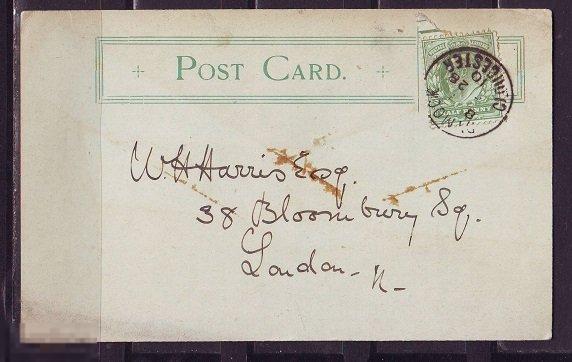 POST CARD.
HALFPENNY
CHICHESTER
W. H Harris Esq.
38 Bloomsbury Sq.
London - N -